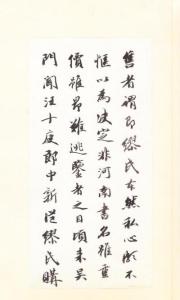 售者謂即繆氏本然私心頗不
愜以為决定非河南書名雖重
價雖昂難逃鑒者之目頃来吴
門聞汪十庭郎中新從繆氏購